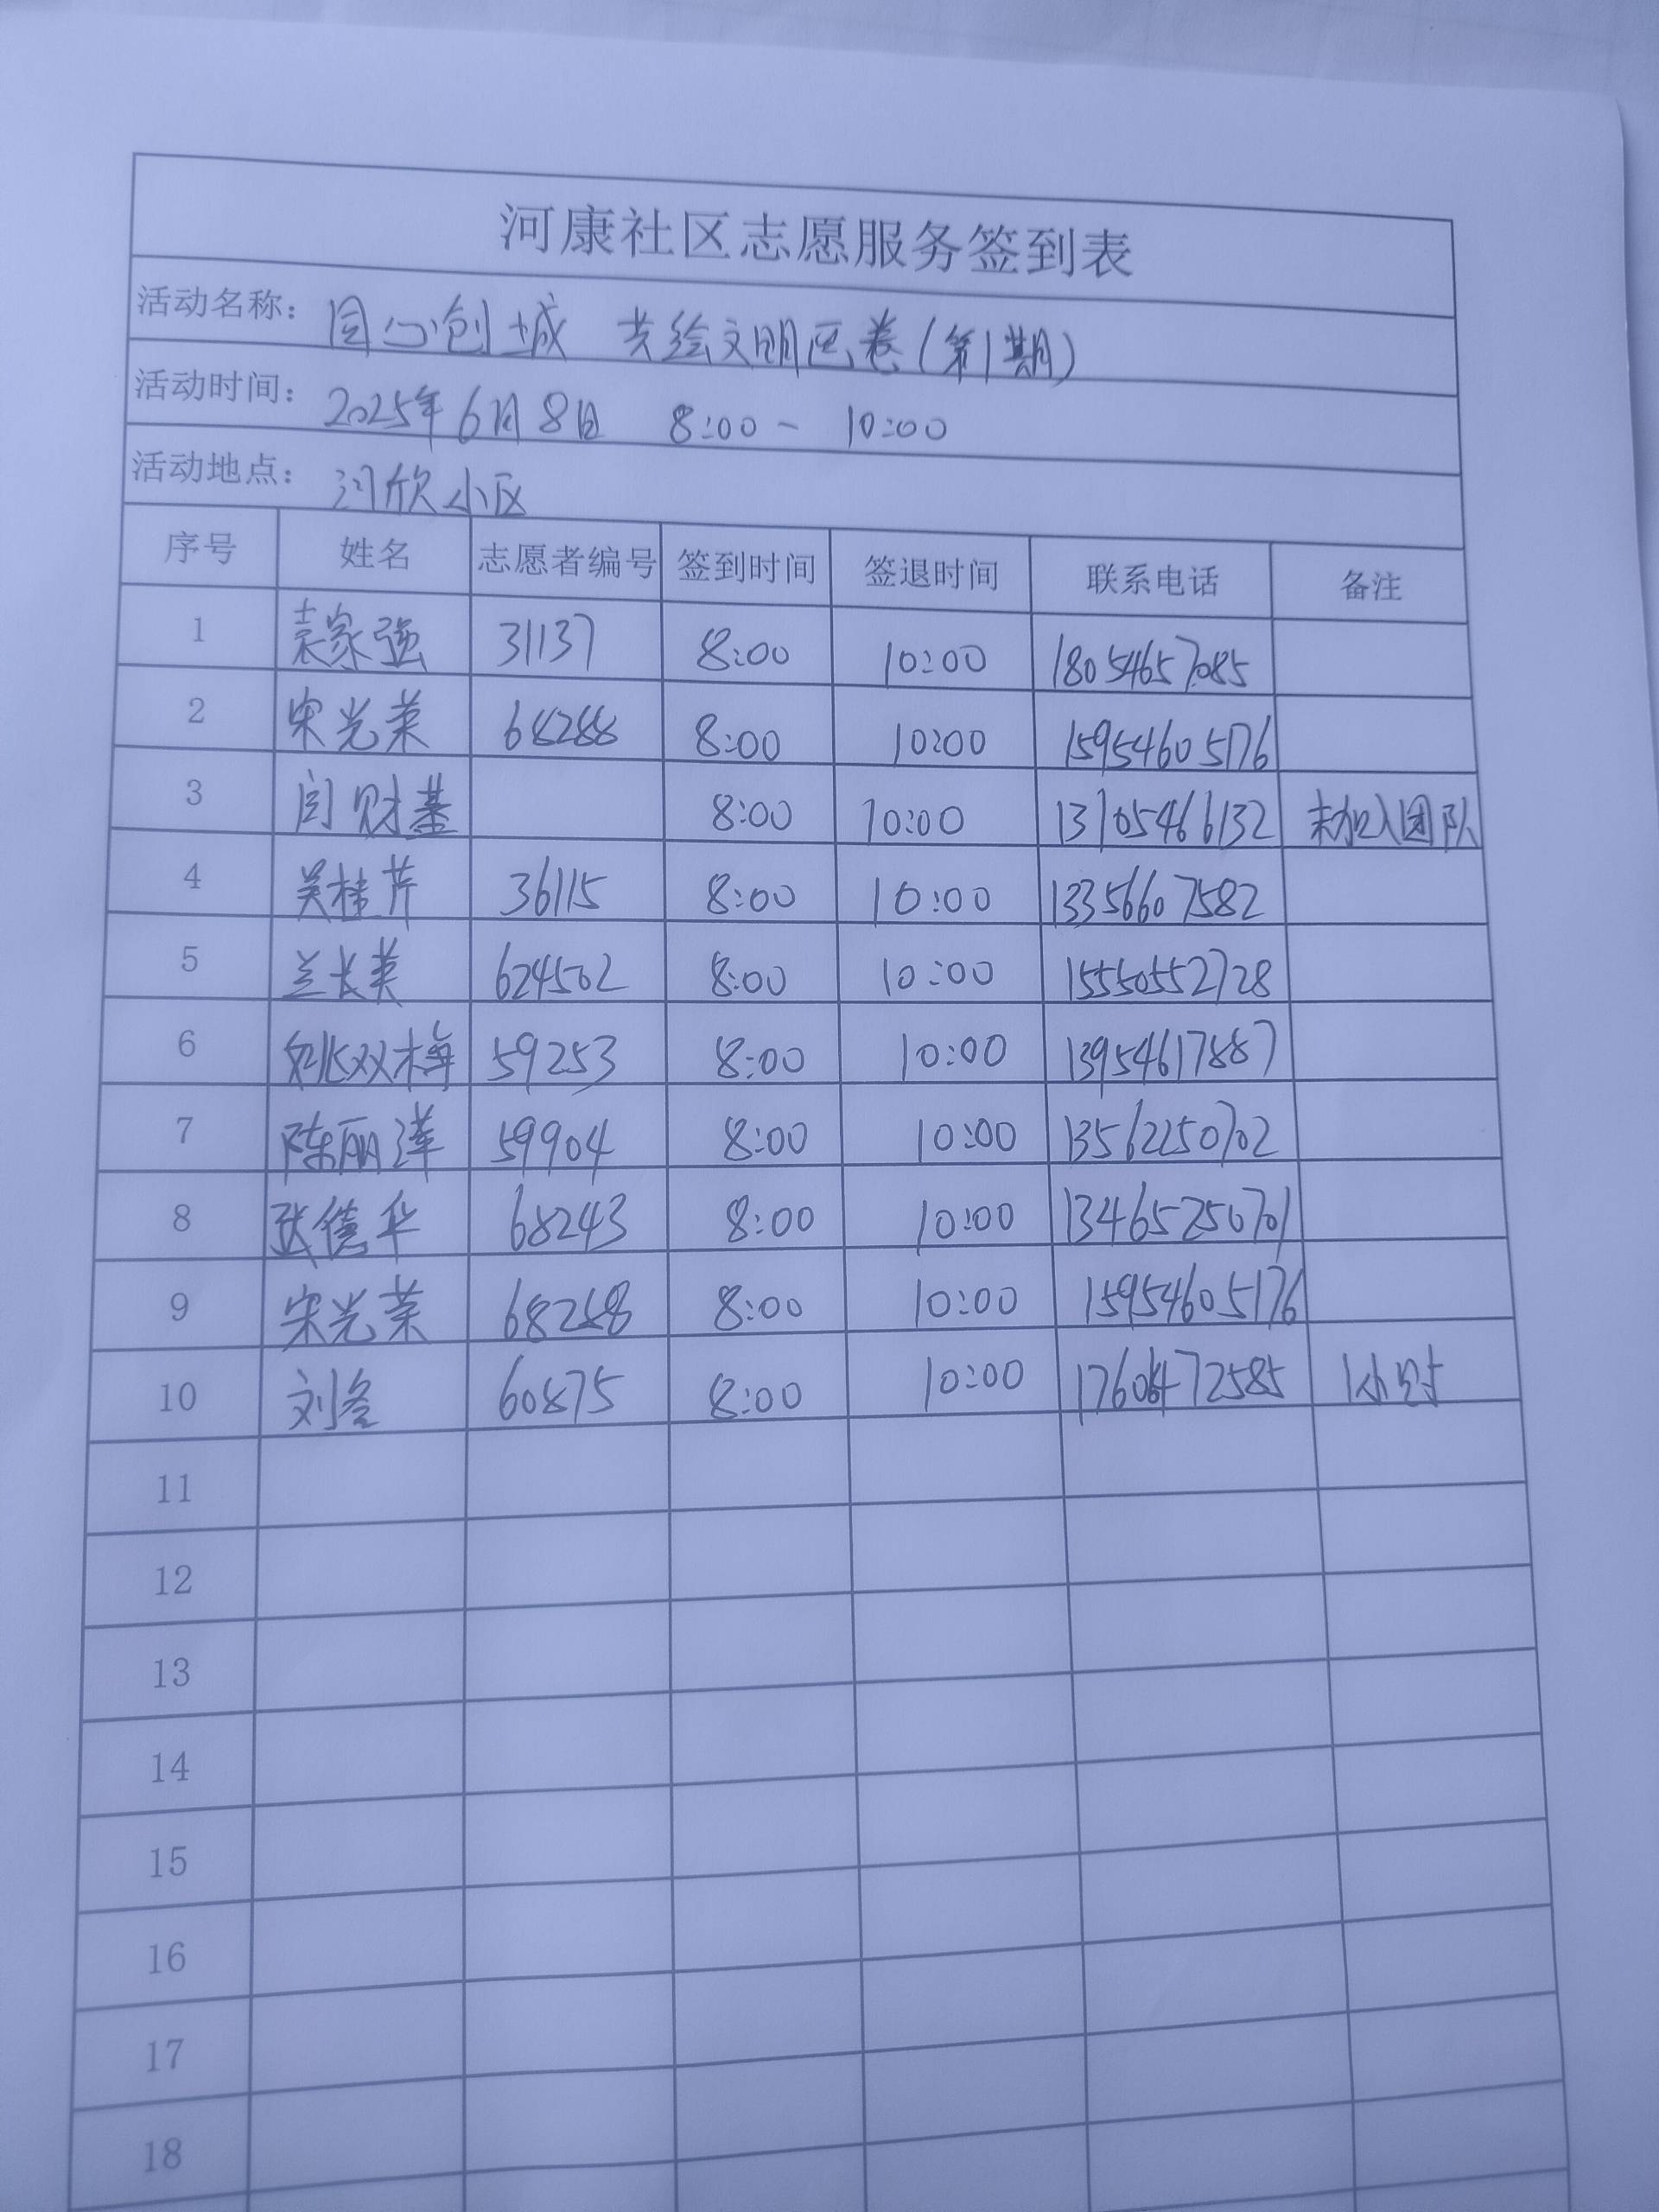 河康社区志愿服务签到表
活动名称： 同心创城 共绘文明画卷（第1期）
活动时间： 2025年6月8日 8:00 - 10:00
活动地点： 河欣小区
序号 姓名 志愿者编号 签到时间 签退时间 联系电话 备注
1 袁家强 31137 8:00 10:00 18054657085
2 宋光荣 68288 8:00 10:00 15954605176
3 闫财基 8:00 10:00 13105466132 未加入团队
4 吴桂芹 36115 8:00 10:00 13356607582
5 兰长美 624502 8:00 10:00 15550552728
6 姚双梅 59253 8:00 10:00 13954617887
7 陈丽萍 59904 8:00 10:00 13562250702
8 张德华 68243 8:00 10:00 13465250701
9 宋光荣 68288 8:00 10:00 15954605176
10 刘 60875 8:00 10:00 1小时
11
12
13
14
15
16
17
18